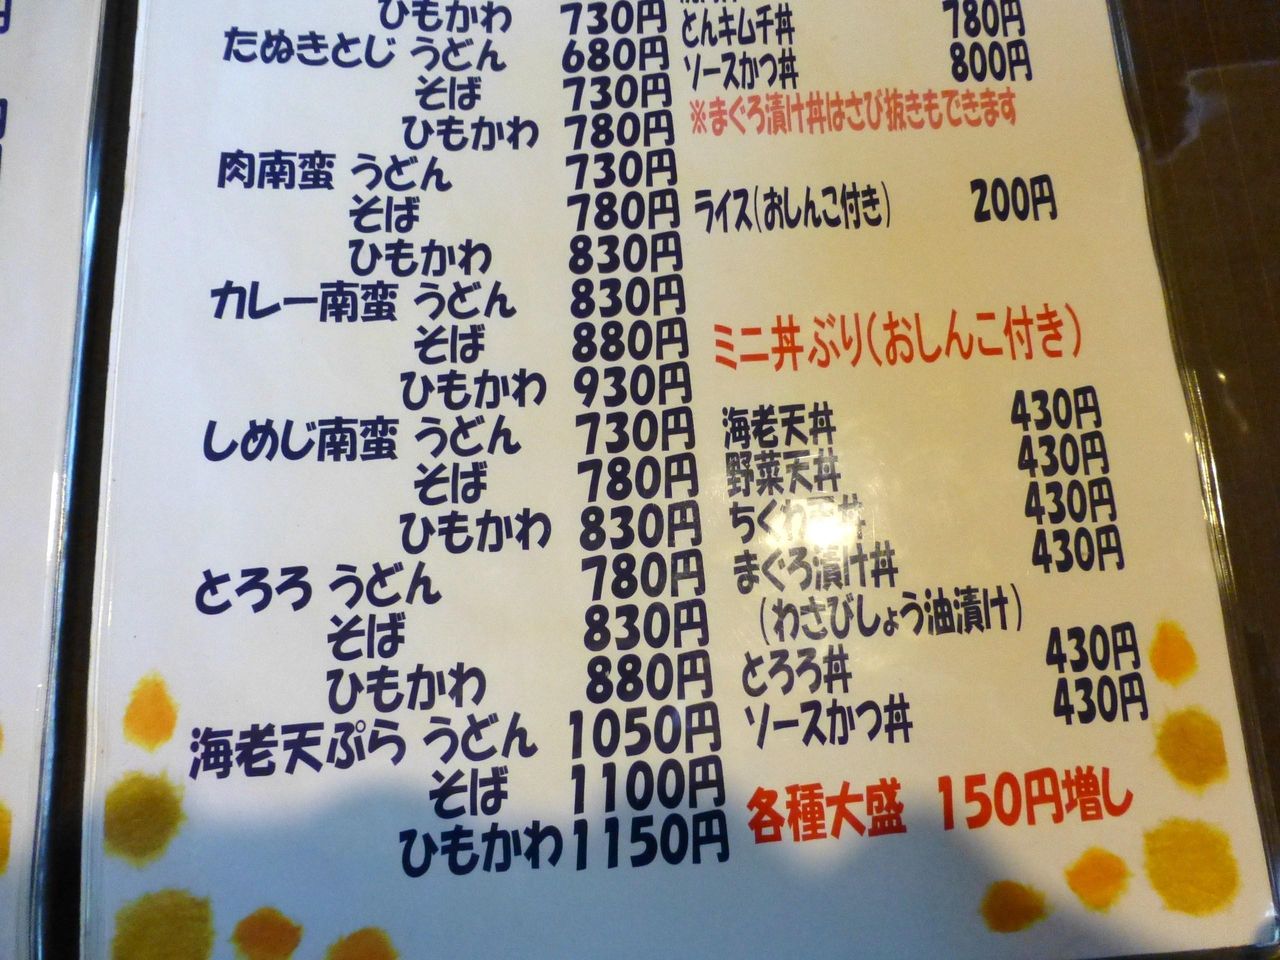 ひもかわ 730円
たぬきとじ うどん 680円
そば 730円
ひもかわ 780円
肉南蛮 うどん 730円
そば 780円
ひもかわ 830円
カレー南蛮 うどん 830円
そば 880円
ひもかわ 930円
しめじ南蛮 うどん 730円
そば 780円
ひもかわ 830円
とろろ うどん 780円
そば 830円
ひもかわ 880円
海老天ぷら うどん 1050円
そば 1100円
ひもかわ 1150円
とんキムチ丼 780円
ソースかつ丼 800円
※まぐろ漬け丼はさび抜きもできます
ライス(おしんこ付き) 200円
ミニ丼ぶり(おしんこ付き)
海老天丼 430円
野菜天丼 430円
ちくわ天丼 430円
まぐろ漬け丼 430円
(わさびしょう油漬け)
とろろ丼 430円
ソースかつ丼 430円
各種大盛 150円増し